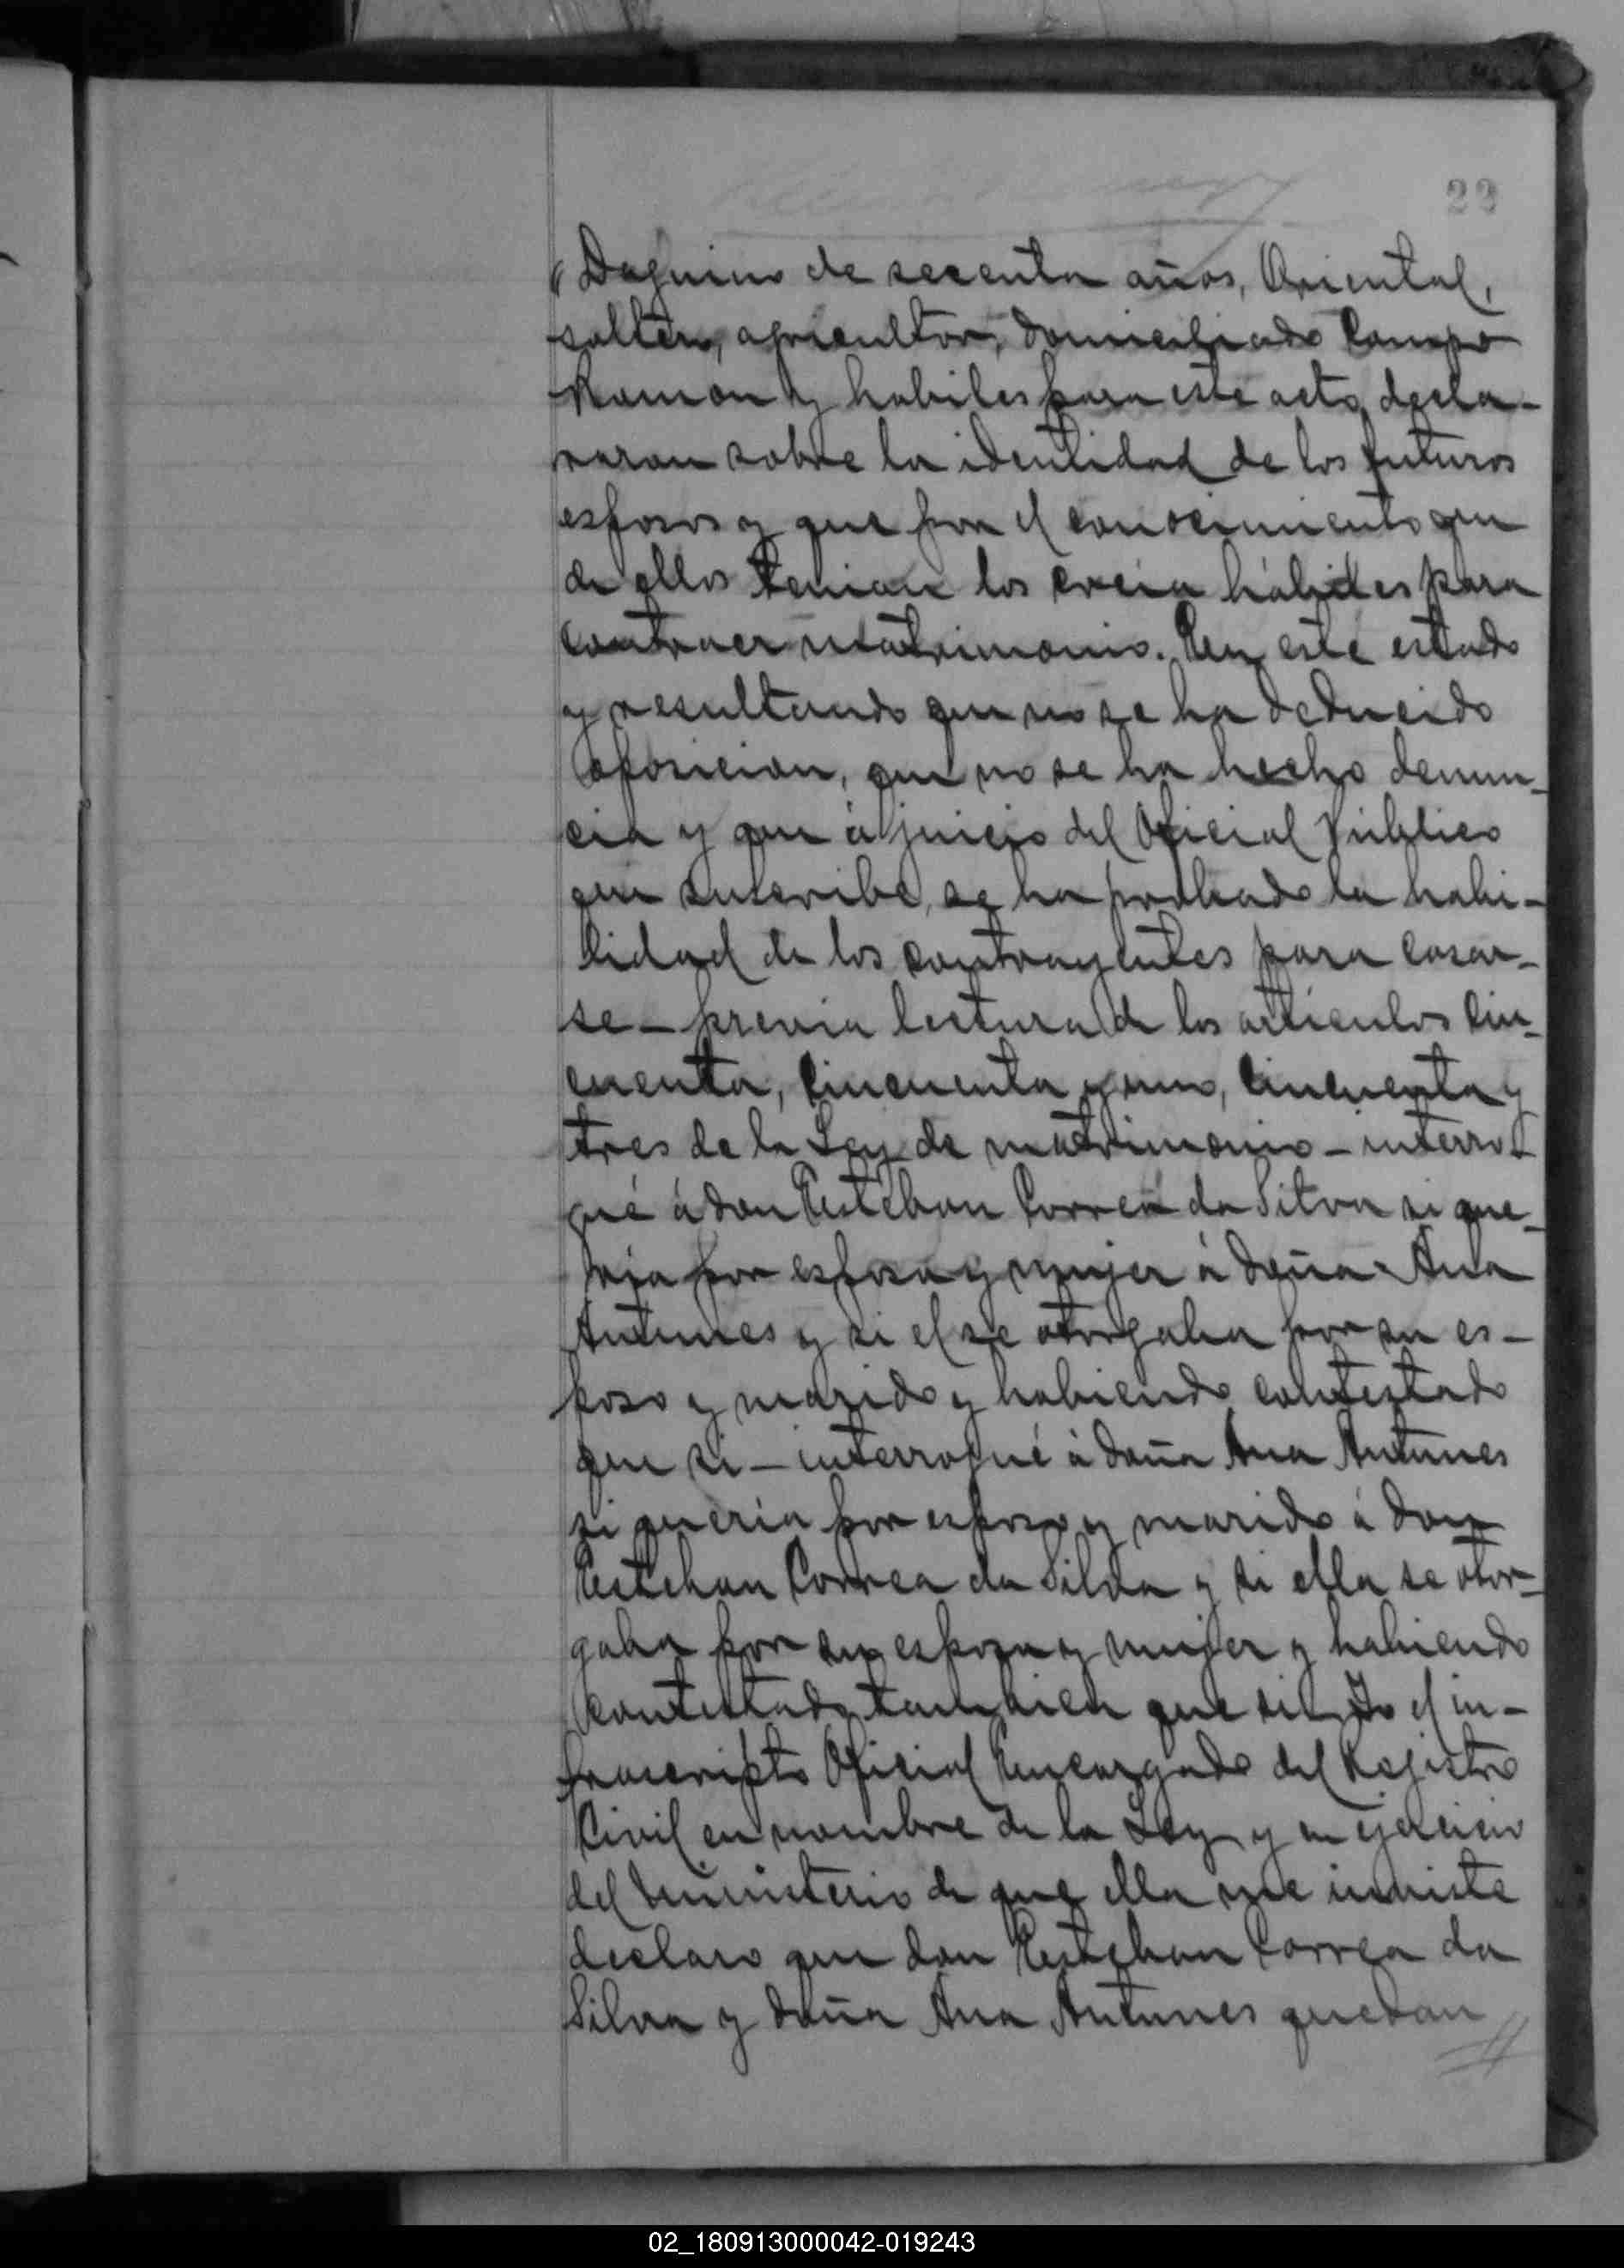 22
"Daguino de secenta años, Oriental,
soltero, agricultor, domiciliado Campo
Ramón y habiles para este acto, decla-
raron sobre la identidad de los futuros
esposos y que por el conocimiento que
de ellos tenian los creia hábiles para
contraer matrimonio. En este estado
y resultando que no se ha deducido
oposicion, que no se ha hecho denun-
cia y que á juicio del Oficial Público
que suscribe, se ha probado la habi-
lidad de los contrayentes para casar-
se - previa lectura de los artículos cin-
cuenta, cincuenta y uno, cincuenta y
tres de la Ley de matrimonio - interro-
gué á don Esteban Correa da Silva si que-
ria por esposa y mujer á doña Ana
Antunes y si el se otorgaba por su es-
poso y marido y habiendo contestado
que si - interrogué á doña Ana Antunes
si queria por esposo y marido á don
Esteban Correa da Silva y si ella se otor-
gaba por su esposa y mujer y habiendo
contestado tambien que si - Yo el in-
frascripto Oficial Encargado del Registro
Civil en nombre de la Ley y en ejercicio
del ministerio de que ella me inviste
declaro que don Esteban Correa da
Silva y doña Ana Antunes quedan
02_180913000042-019243